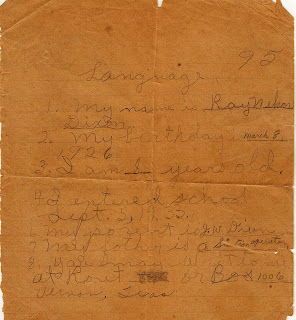 95
Language.
1. My name is Ray Nelson
Dixon
2. My birthday is march 8,
1926
3. I am years old.
4. I entered school
Sept. 5, 19
6 My parent is W. Dixon
7 My father is a
8. You may
at Rout or Box 1006
Vernon, Texas